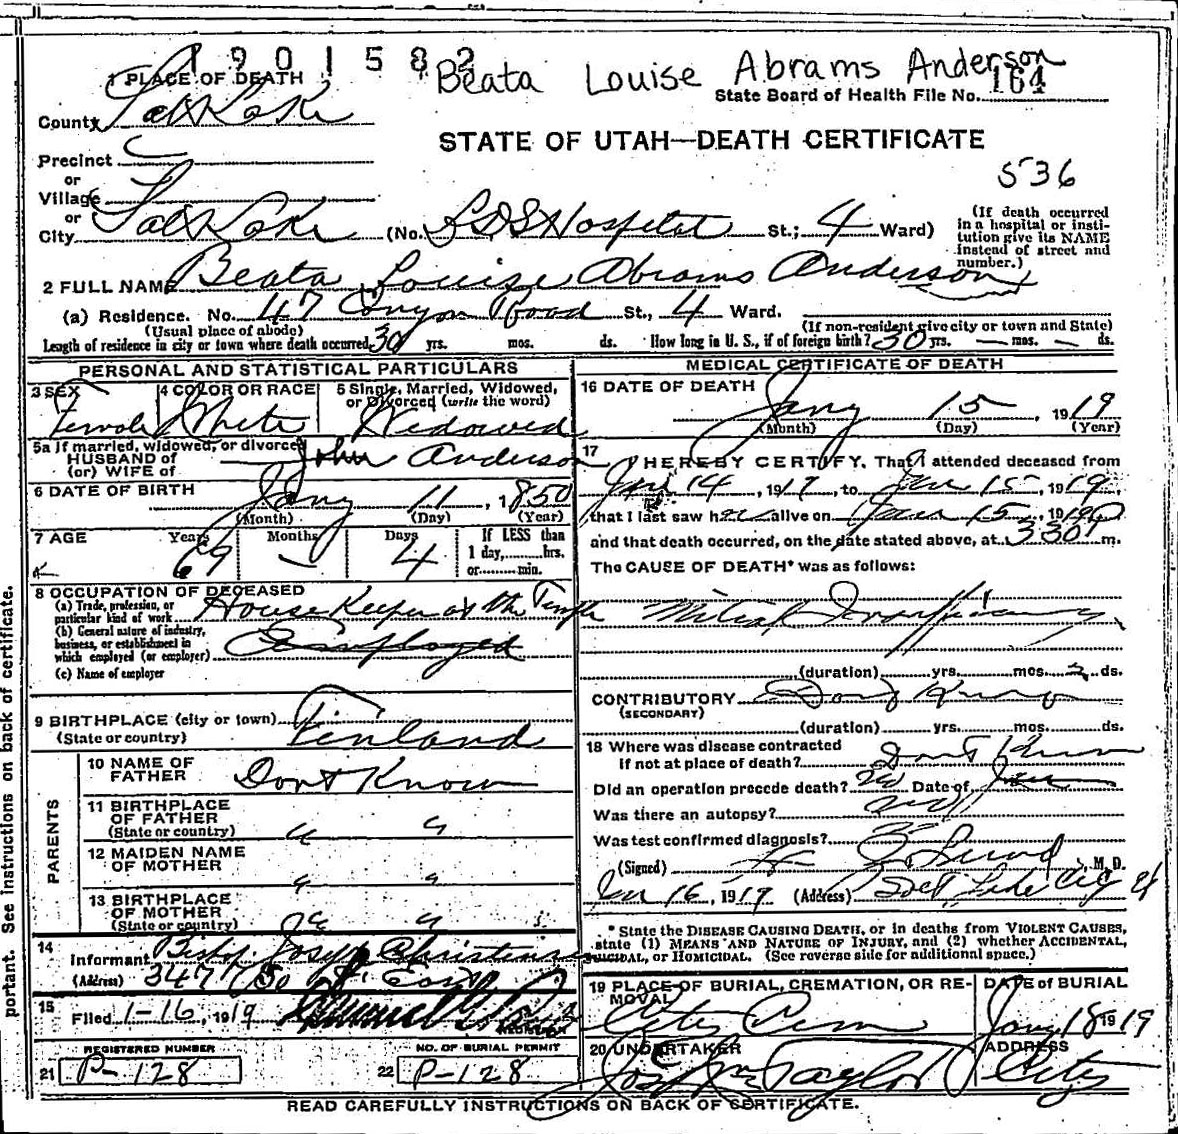 1901582
Beata Louise Abrams Anderson
1 PLACE OF DEATH
164
State Board of Health File No.
County Salt Lake
STATE OF UTAH—DEATH CERTIFICATE
Precinct
or
536
Village
or
City Salt Lake (No. LDS Hospital St.; 4 Ward)
(If death occurred in a hospital or insti-
tution give its NAME instead of street and number.)
2 FULL NAME Beata Louise Abrams Anderson
(a) Residence. No. 47 Canyon Road St., 4 Ward.
(Usual place of abode) (If non-resident give city or town and State)
Length of residence in city or town where death occurred 30 yrs. mos. ds. How long in U. S., if of foreign birth? 30 yrs. — mos. — ds.
PERSONAL AND STATISTICAL PARTICULARS
3 SEX Female
4 COLOR OR RACE White
5 Single, Married, Widowed, or Divorced (write the word) Widowed
5a If married, widowed, or divorced
HUSBAND of
(or) WIFE of John Anderson
6 DATE OF BIRTH Jany 11, 1850
(Month) (Day) (Year)
7 AGE Years 69 Months — Days 4 If LESS than 1 day, hrs. or min.
8 OCCUPATION OF DECEASED
(a) Trade, profession, or particular kind of work House Keeper at the Temple
(b) General nature of industry, business, or establishment in which employed (or employer) Employed
(c) Name of employer
9 BIRTHPLACE (city or town)
(State or country) Finland
PARENTS
10 NAME OF FATHER Dont Know
11 BIRTHPLACE OF FATHER (State or country) " "
12 MAIDEN NAME OF MOTHER " "
13 BIRTHPLACE OF MOTHER (State or country) " "
14 Informant Joseph
(Address) 347
15 Filed 1-16, 1919
REGISTERED NUMBER
21 P-128
NO. OF BURIAL PERMIT
22 P-128
MEDICAL CERTIFICATE OF DEATH
16 DATE OF DEATH Jany 15, 1919
(Month) (Day) (Year)
17 I HEREBY CERTIFY, That I attended deceased from
Jan 14, 1919, to Jan 15, 1919,
that I last saw her alive on Jan 15, 1919
and that death occurred, on the date stated above, at 330 m.
The CAUSE OF DEATH* was as follows:
Mitral Insufficiency
(duration) yrs. mos. 2 ds.
CONTRIBUTORY Dont Know
(SECONDARY)
(duration) yrs. mos. ds.
18 Where was disease contracted
if not at place of death? Dont Know
Did an operation precede death? No Date of
Was there an autopsy? No
Was test confirmed diagnosis?
(Signed) Lund, M. D.
Jan 16, 1919 (Address) Salt Lake City
* State the DISEASE CAUSING DEATH, or in deaths from VIOLENT CAUSES,
state (1) MEANS AND NATURE OF INJURY, and (2) whether ACCIDENTAL,
SUICIDAL, or HOMICIDAL. (See reverse side for additional space.)
19 PLACE OF BURIAL, CREMATION, OR RE-
MOVAL City Cem
DATE of BURIAL Jany 18 1919
20 UNDERTAKER Jos Wm Taylor
ADDRESS City
READ CAREFULLY INSTRUCTIONS ON BACK OF CERTIFICATE.
portant. See instructions on back of certificate.